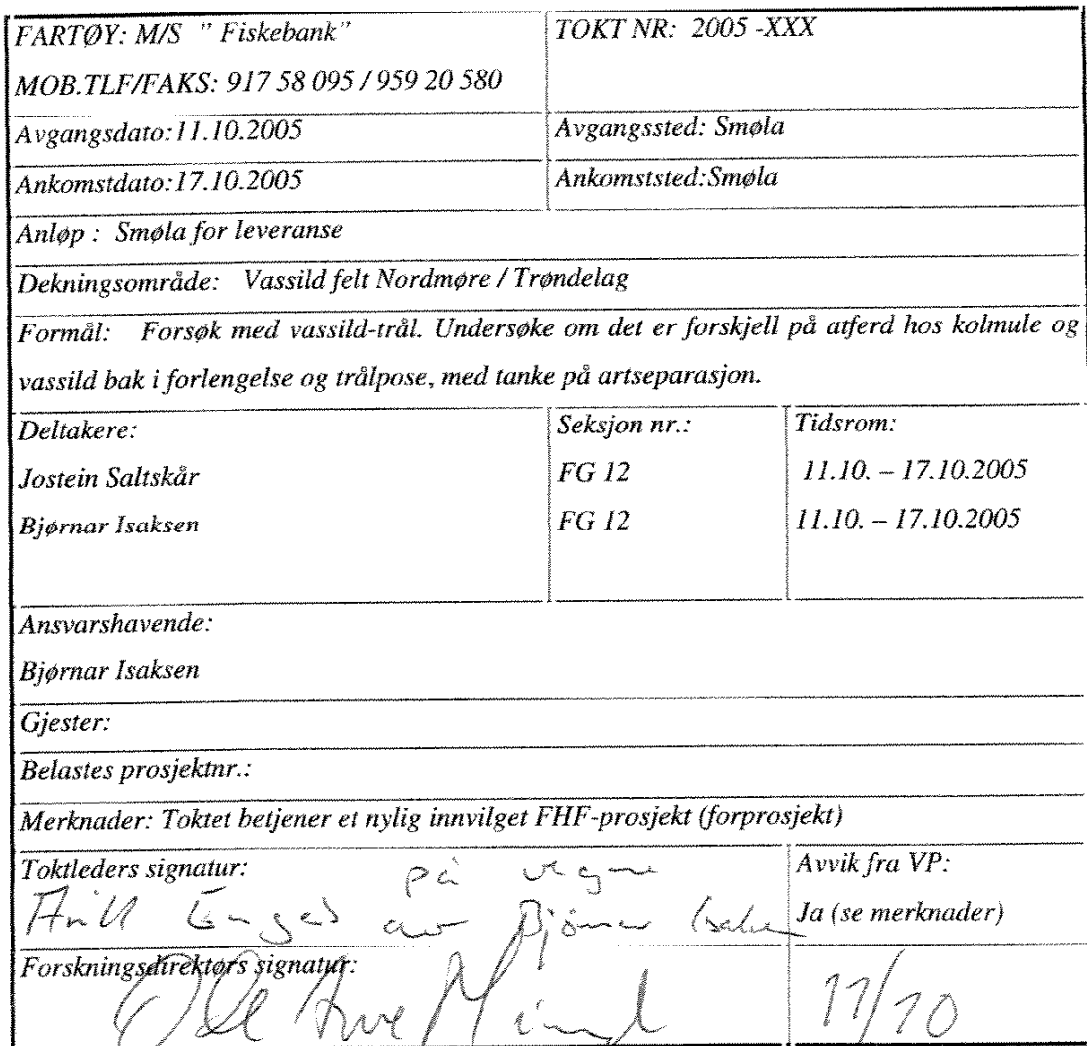 FARTØY: M/S " Fiskebank"
TOKT NR: 2005 -XXX
MOB.TLF/FAKS: 917 58 095 / 959 20 580
Avgangsdato:11.10.2005
Avgangssted: Smøla
Ankomstdato:17.10.2005
Ankomststed:Smøla
Anløp : Smøla for leveranse
Dekningsområde: Vassild felt Nordmøre / Trøndelag
Formål: Forsøk med vassild-trål. Undersøke om det er forskjell på atferd hos kolmule og
vassild bak i forlengelse og trålpose, med tanke på artseparasjon.
Deltakere:
Seksjon nr.:
Tidsrom:
Jostein Saltskår
FG 12
11.10. – 17.10.2005
Bjørnar Isaksen
FG 12
11.10. – 17.10.2005
Ansvarshavende:
Bjørnar Isaksen
Gjester:
Belastes prosjektnr.:
Merknader: Toktet betjener et nylig innvilget FHF-prosjekt (forprosjekt)
Toktleders signatur:
på vegne
av Bjørnar
Avvik fra VP:
Ja (se merknader)
Forskningsdirektørs signatur:
11/10